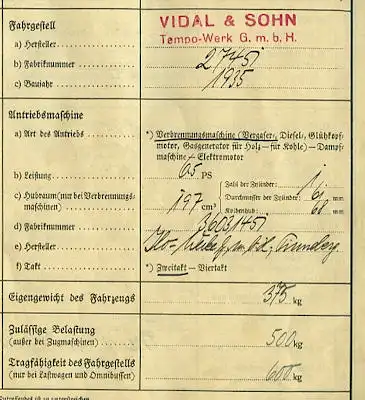 Fahrgestell
VIDAL & SOHN
a) Hersteller
Tempo-Werk G. m. b. H.
b) Fabriknummer 27451
c) Baujahr 1935
Antriebsmaschine
a) Art des Antriebs *) Verbrennungsmaschine (Vergaser-, Diesel-, Glühkopf-
motor, Gasgenerator für Holz — für Kohle) — Dampf-
maschine — Elektromotor
b) Leistung 6,5 PS
c) Hubraum (nur bei Verbrennungs-
maschinen) 197 cm³
Zahl der Zylinder: 1
Durchmesser der Zylinder: 61 mm
Kolbenhub: 68 mm
d) Fabriknummer 3603145
e) Hersteller
f) Takt *) Zweitakt — Viertakt
Eigengewicht des Fahrzeugs 375 kg
Zulässige Belastung
(außer bei Zugmaschinen) 500 kg
Tragfähigkeit des Fahrgestells
(nur bei Lastwagen und Omnibussen) 600 kg